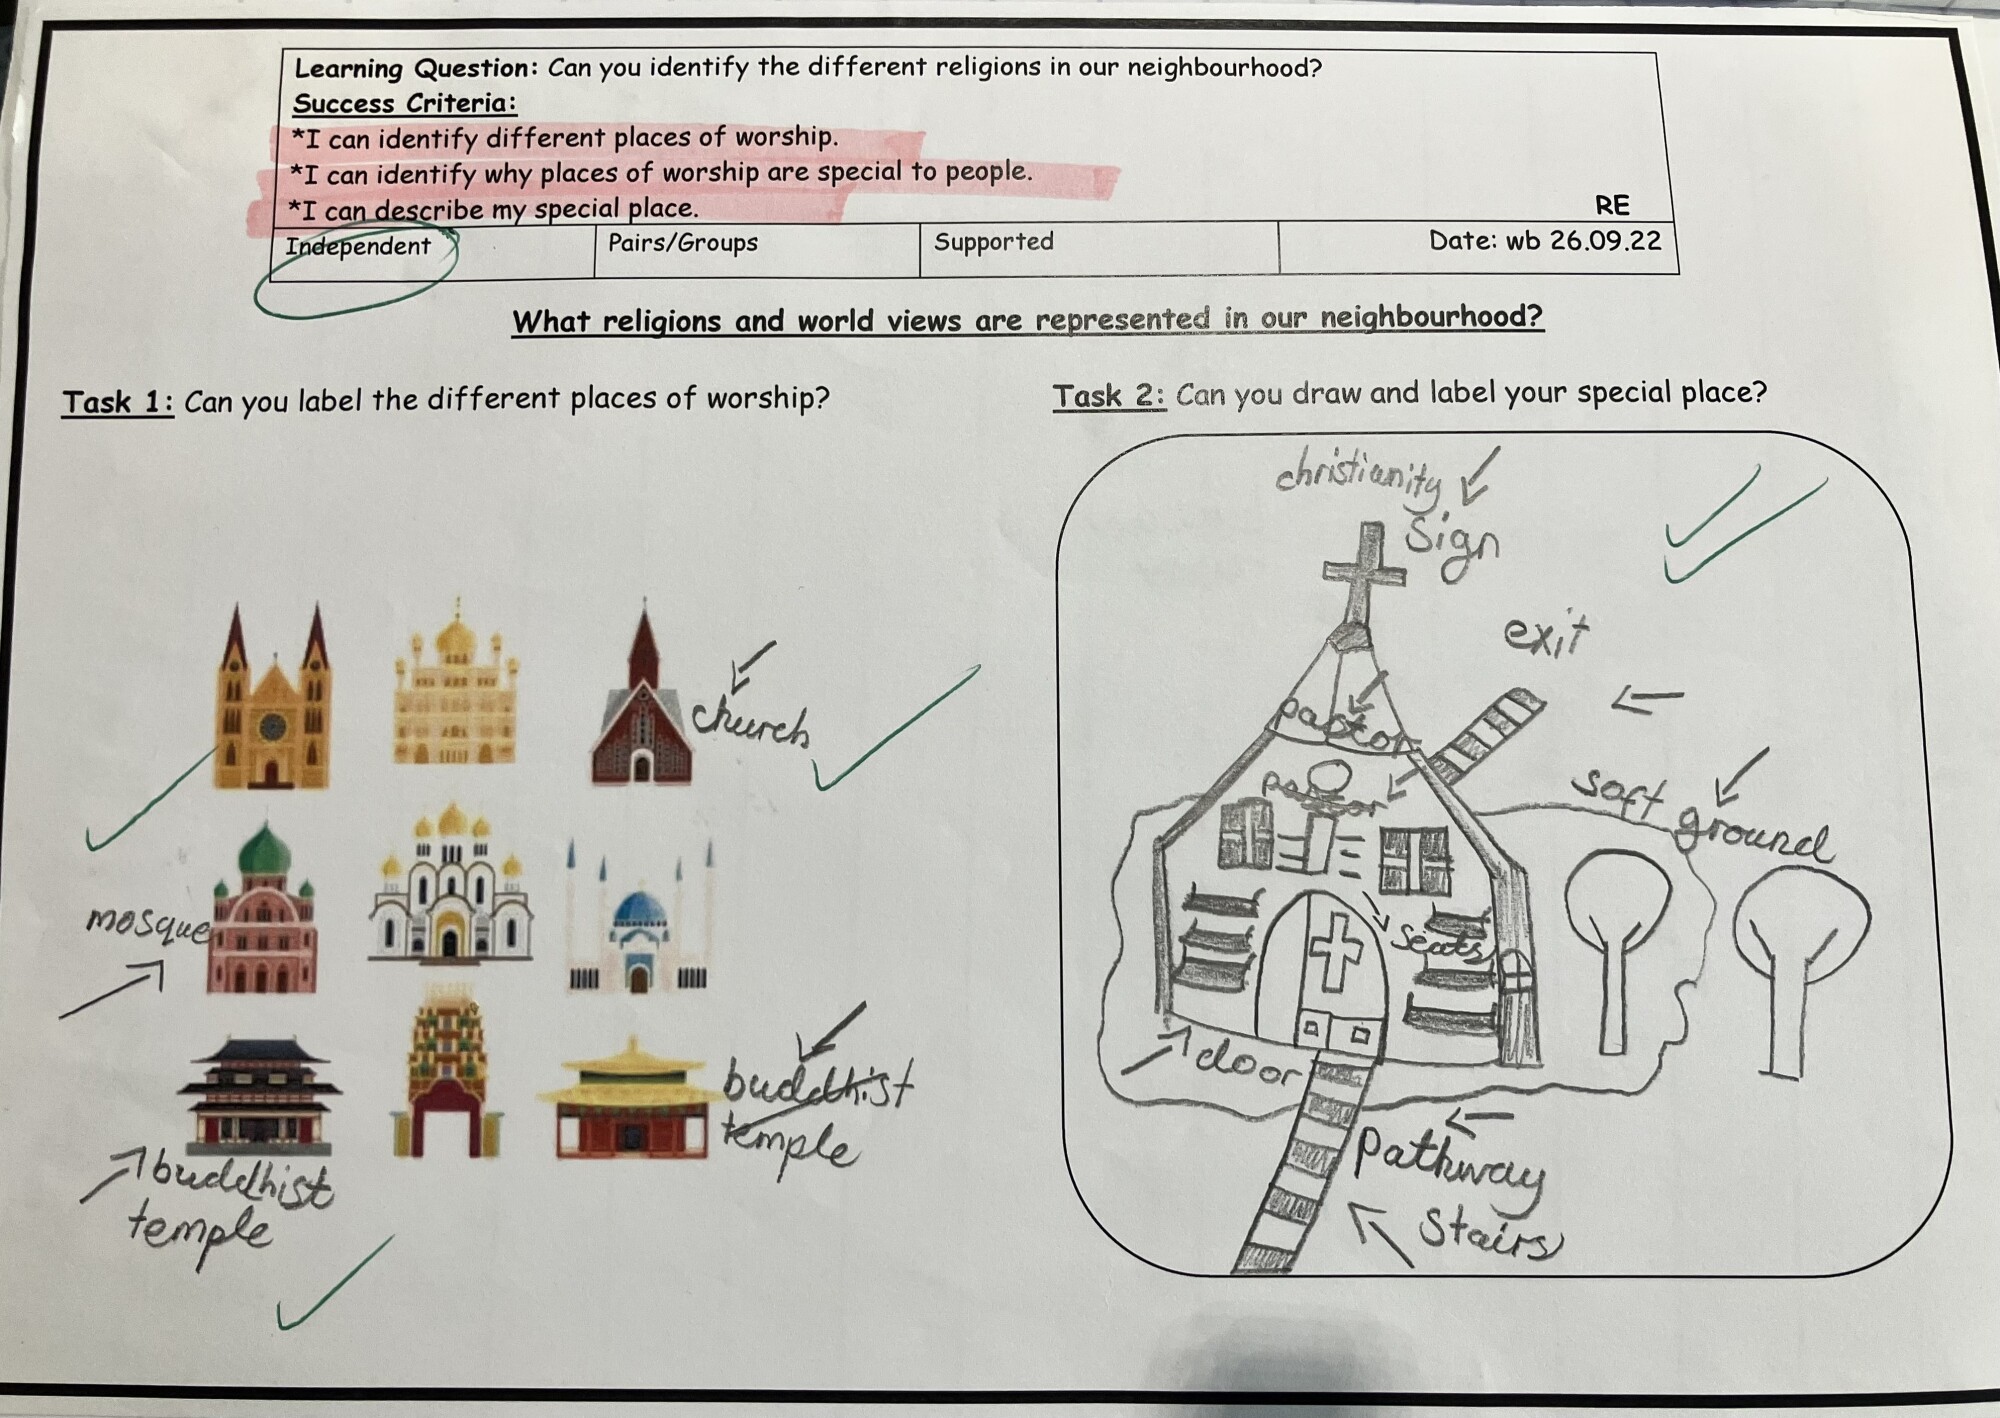 Learning Question: Can you identify the different religions in our neighbourhood?
Success Criteria:
*I can identify different places of worship.
*I can identify why places of worship are special to people.
*I can describe my special place.
RE
Independent
Pairs/Groups
Supported
Date: wb 26.09.22
What religions and world views are represented in our neighbourhood?
Task 1: Can you label the different places of worship?
church
mosque
buddhist
temple
buddhist
temple
Task 2: Can you draw and label your special place?
christianity
sign
exit
pastor
pastor
soft
ground
seats
door
pathway
stairs